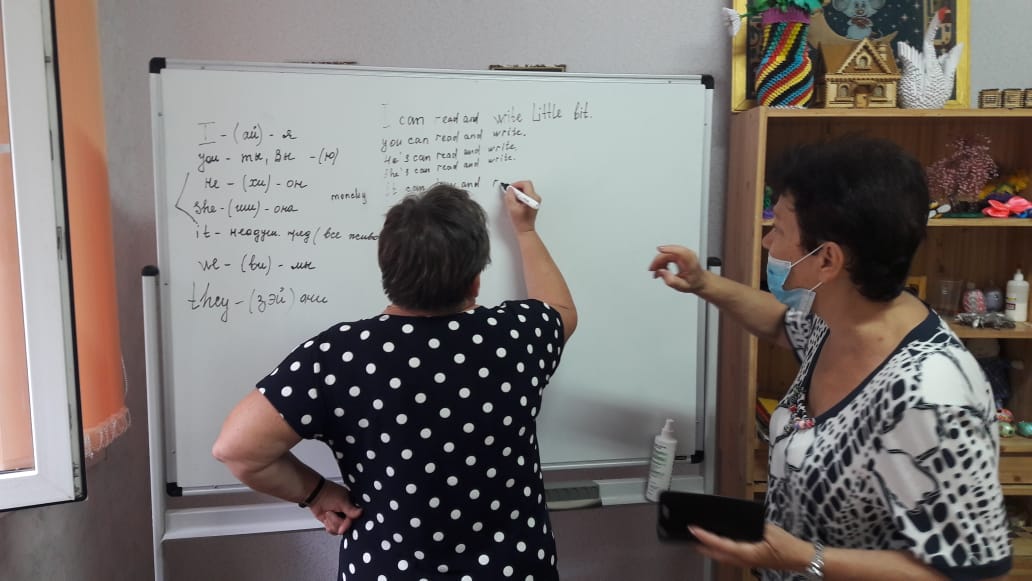 I - (ай) - я
you - ты, вы - (ю)
He - (хи) - он
She - (ши) - она
it - неодуш. пред (все живо
we - (ви) - мы
they - (зэй) они
moneky
I can read and write Little bit.
you can read and write.
He's can read and write.
She's can read and write.
It can and